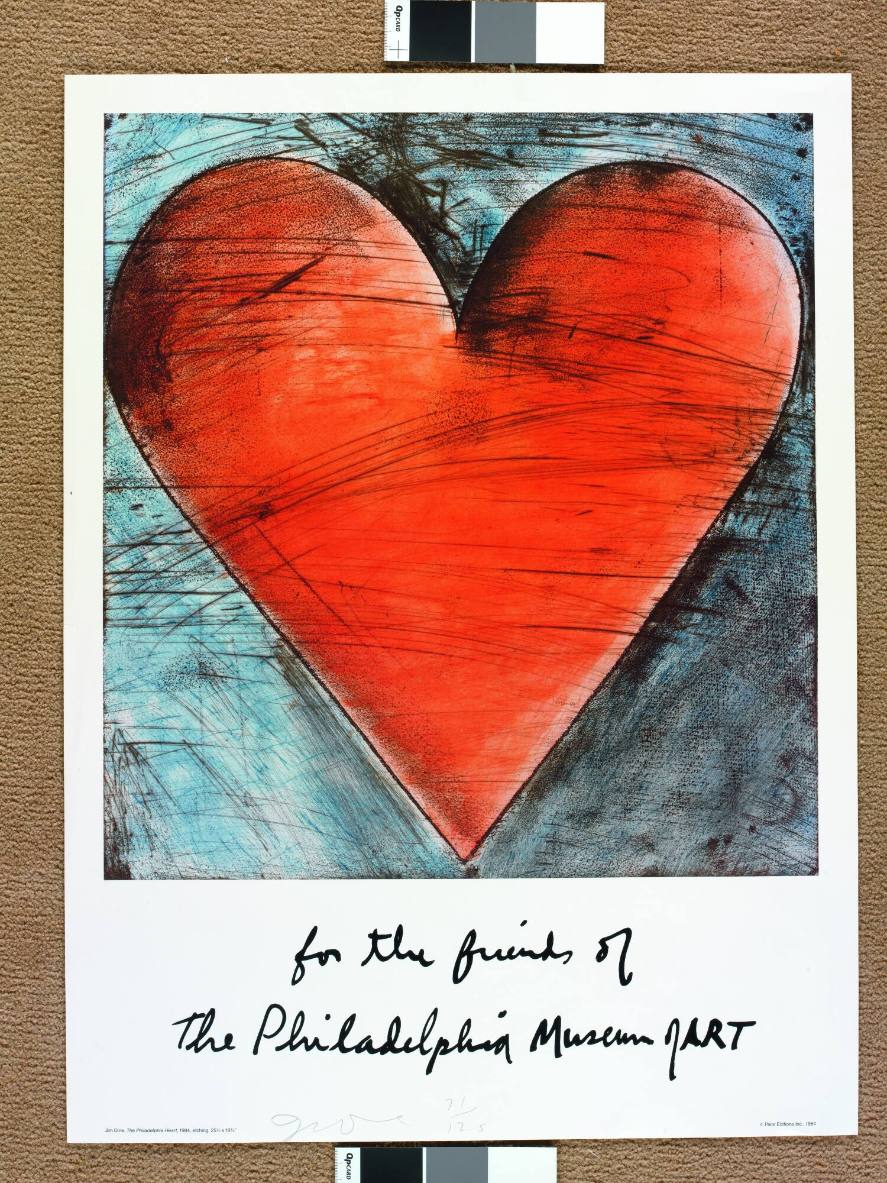 QPCARD
for the friends of
The Philadelphia Museum of ART
71/125
Jim Dine, The Philadelphia Heart, 1984, etching,
© Pace Editions Inc., 1984
QPCARD